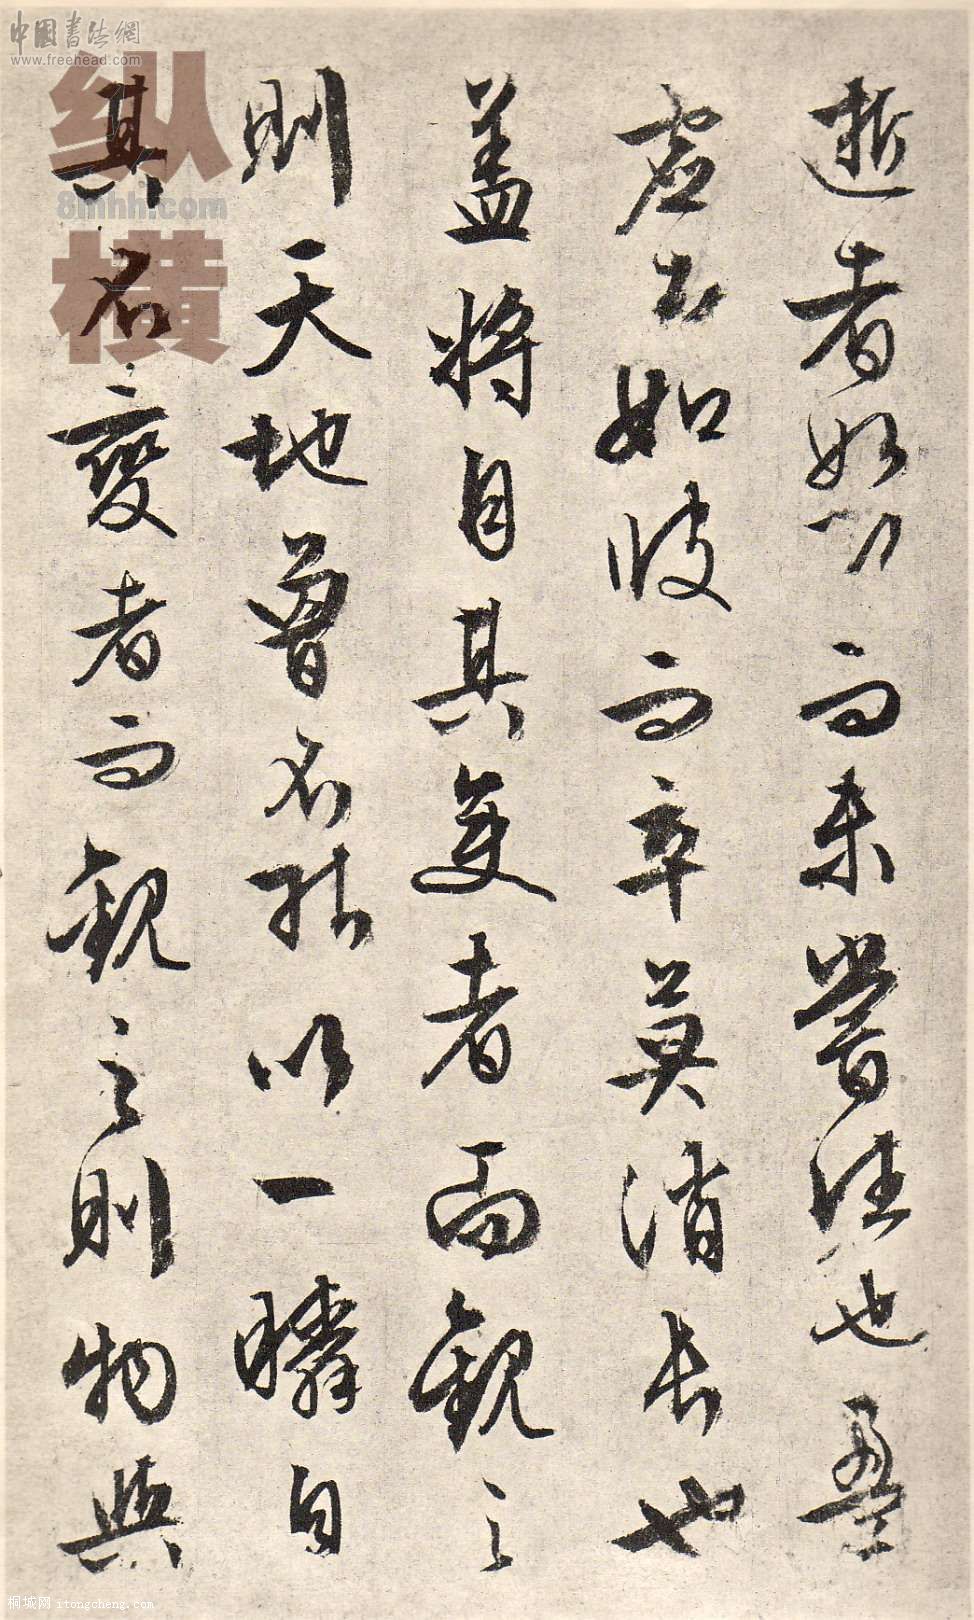 逝者如斯而未嘗往也盈
虛者如彼而卒莫消長也
蓋將自其變者而觀之
則天地曾不能以一瞬自
其不變者而觀之則物與
中國書法網
www.freehead.com
纵
8mhh.com
横
桐城网 itongcheng.com